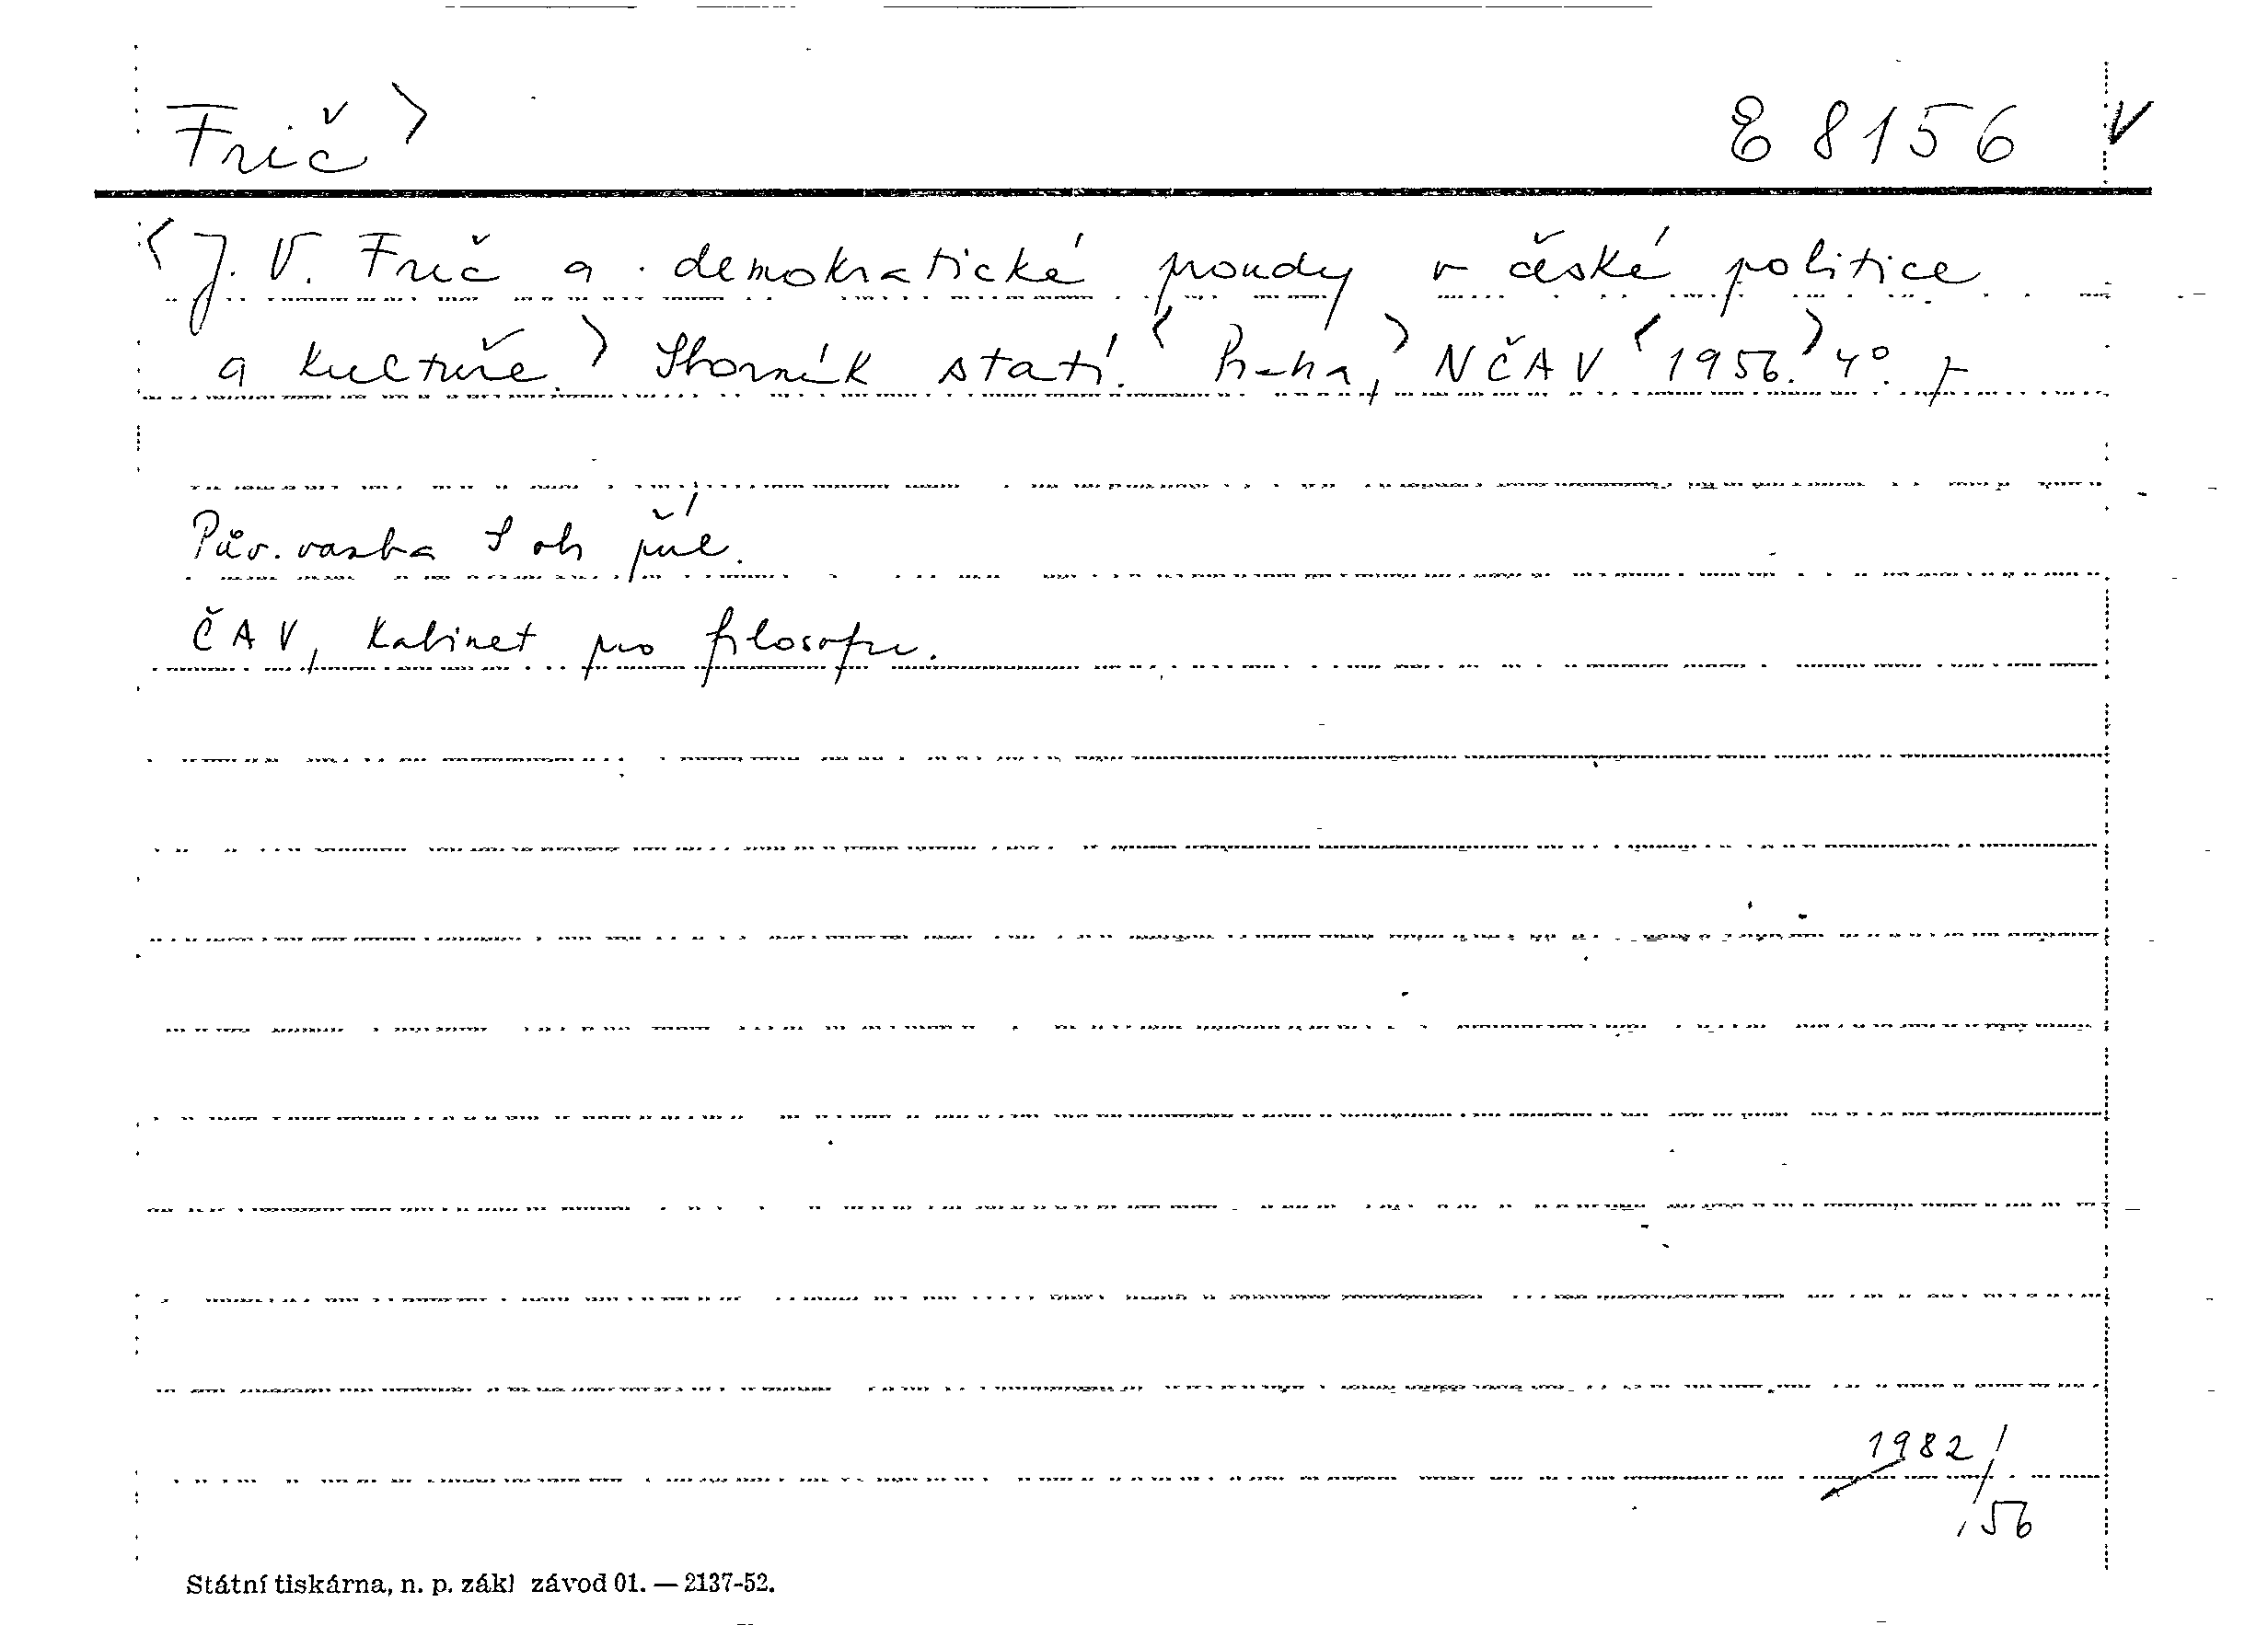 Frič > E 8156 V
<J. V. Frič a demokratické proudy v české politice
a kultuře.> Sborník statí. <Praha,> NČAV <1956.> 4°.
Pův. vazba S ob příl.
ČAV, Kabinet pro filosofii.
1982/
56
Státní tiskárna, n. p. zákl závod 01. — 2137-52.